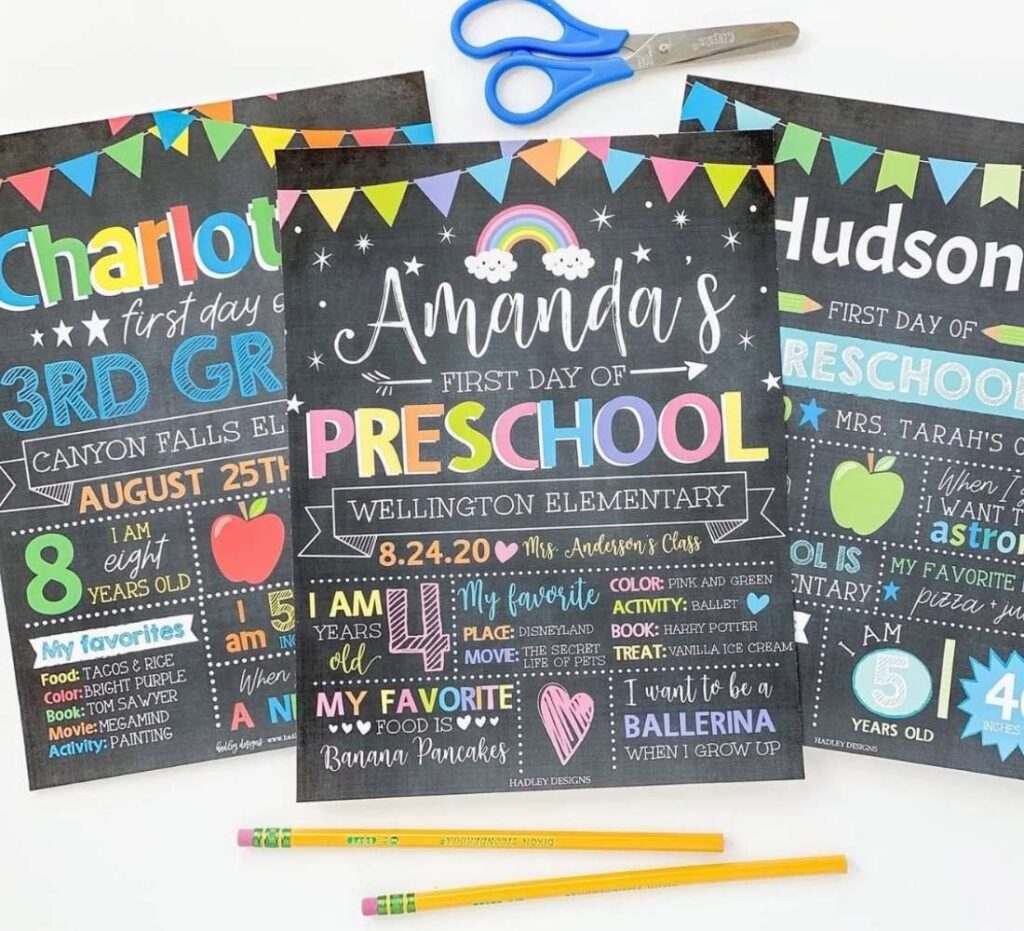 Charlot
first day
3RD GR
CANYON FALLS EL
AUGUST 25TH
8
I AM
eight
YEARS OLD
My favorites
Food: TACOS & RICE
Color: BRIGHT PURPLE
Book: TOM SAWYER
Movie: MEGAMIND
Activity: PAINTING
I am 5
When
A NE
hadley designs
Amanda's
FIRST DAY OF
PRESCHOOL
WELLINGTON ELEMENTARY
8.24.20 Mrs. Anderson's Class
I AM 4
YEARS
old
My favorite
PLACE: DISNEYLAND
MOVIE: THE SECRET
LIFE OF PETS
COLOR: PINK AND GREEN
ACTIVITY: BALLET
BOOK: HARRY POTTER
TREAT: VANILLA ICE CREAM
MY FAVORITE
FOOD IS
Banana Pancakes
I want to be a
BALLERINA
WHEN I GROW UP
HADLEY DESIGNS
Hudson
FIRST DAY OF
RESCHOOL
MRS. TARAH'S C
When I
I WANT T
astron
OL IS
ENTARY
MY FAVORITE
pizza + ju
I AM
5
YEARS OLD
4
INCHES
HADLEY DESIGNS